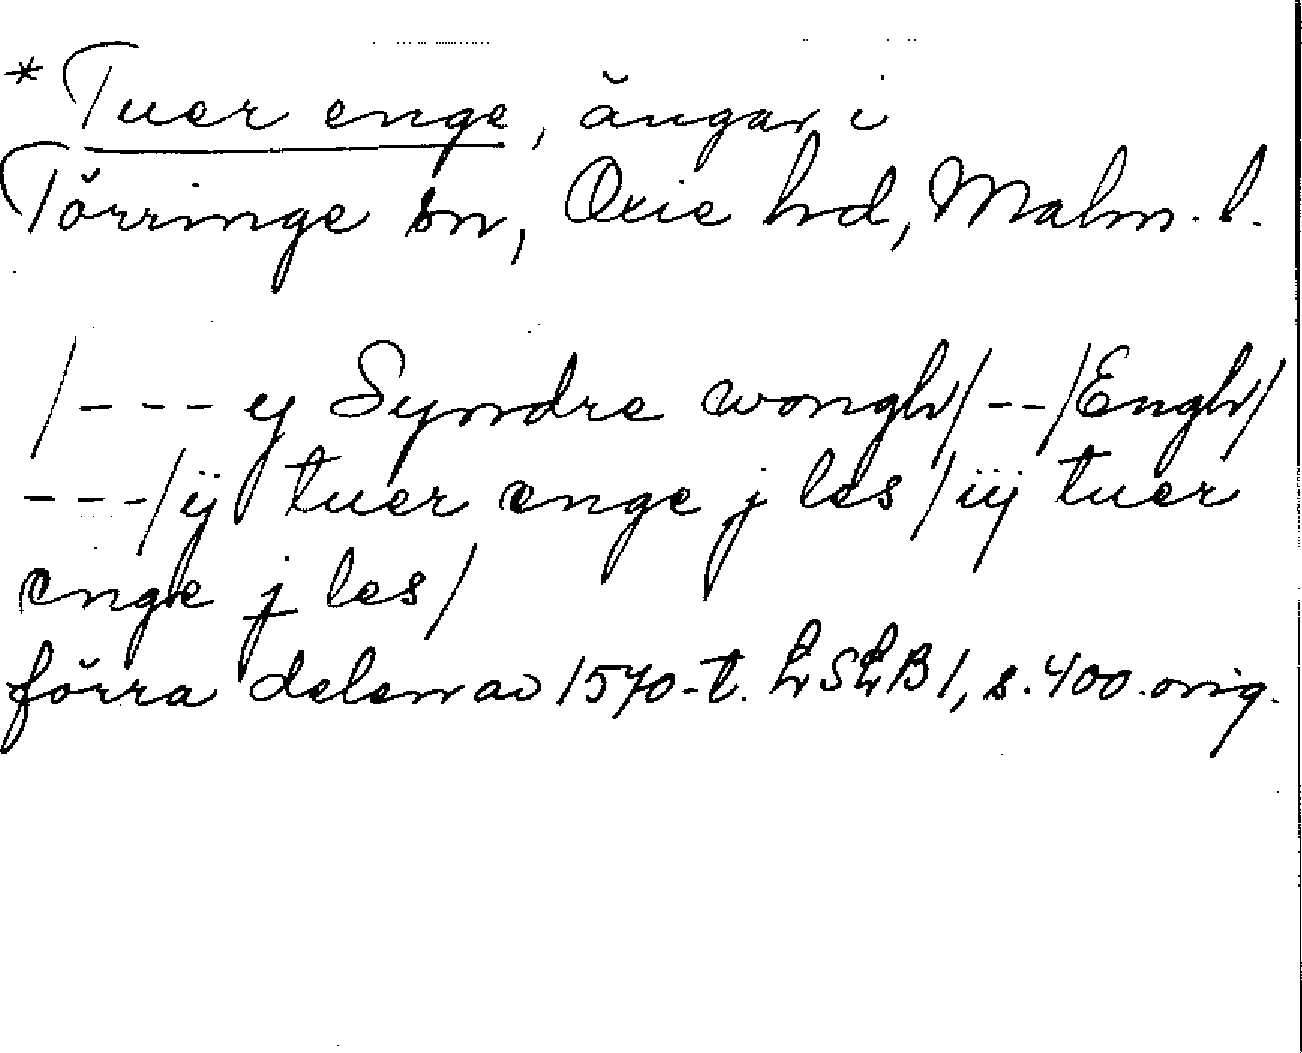 * Tuer enge, ängar i
Törringe sn, Oxie hd, Malm. l.
/--- y Syndre wongh/--/Engh/
---/ij tuer enge j les/iij tuer
enge j les/
förra delen av 1570-t. LSLB 1, s. 400. orig.